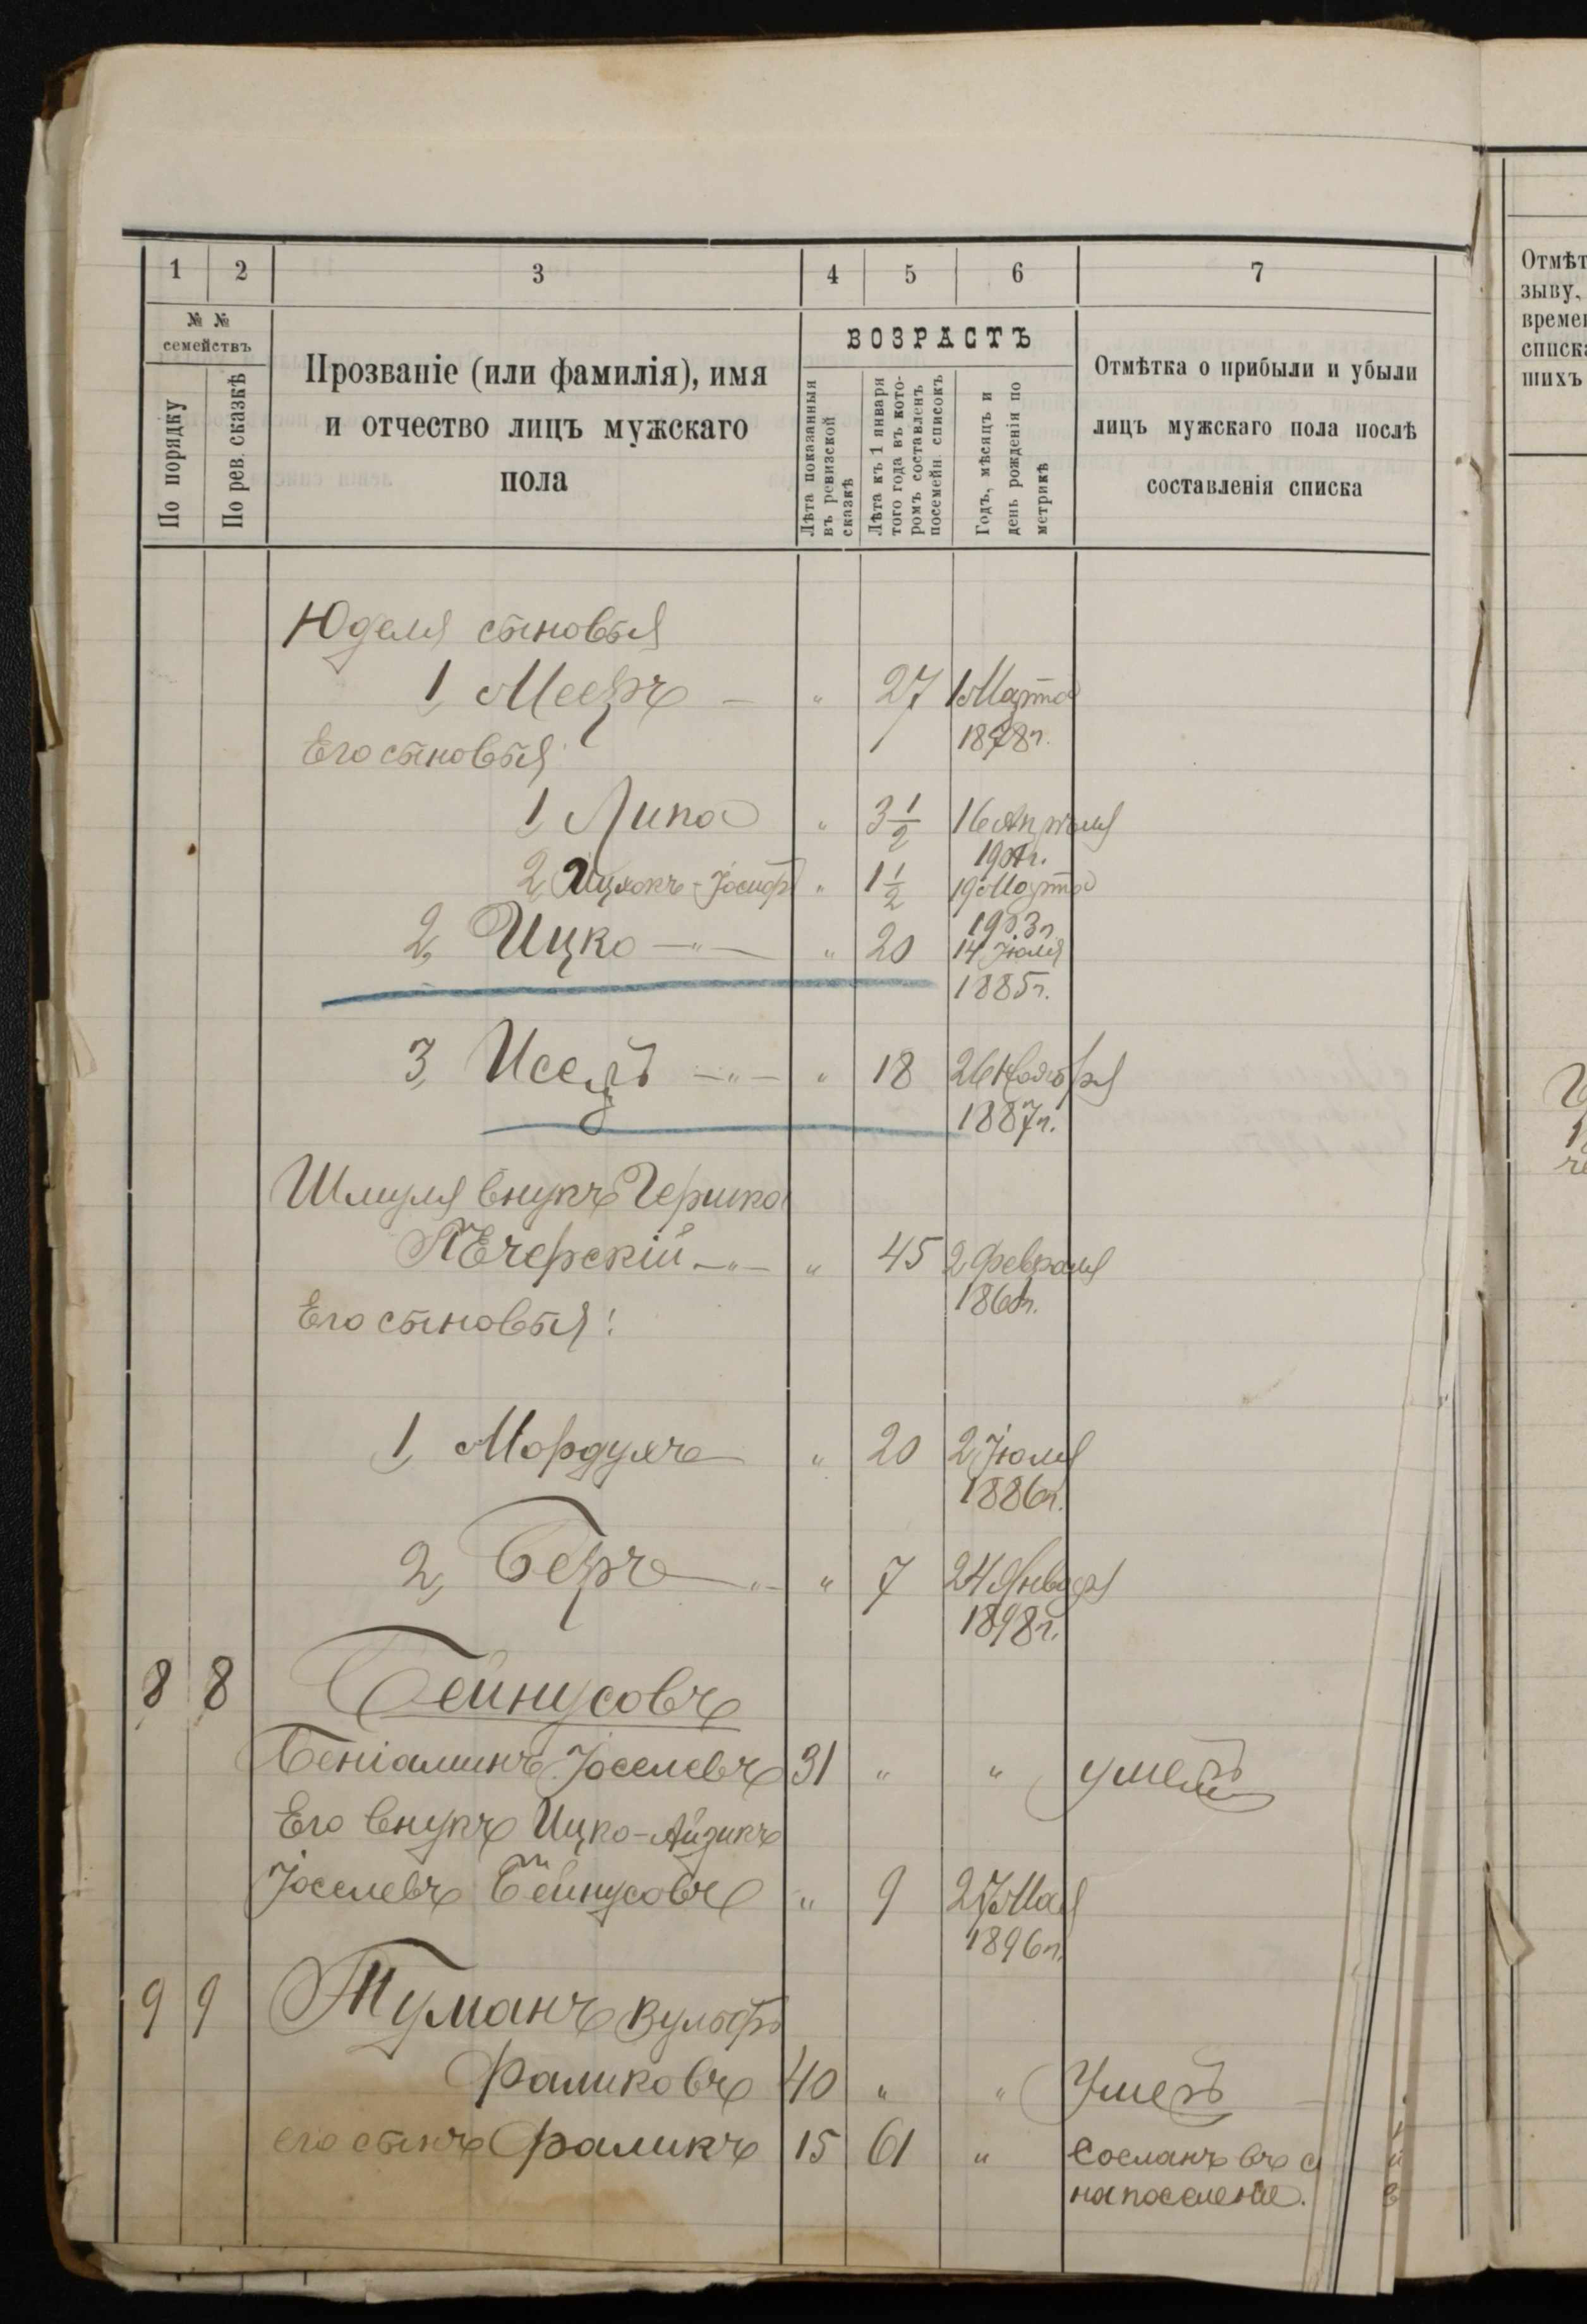 1 2 3 4 5 6 7
№ №
семействъ
По порядку
По рев. сказкѣ
Прозваніе (или фамилія), имя
и отчество лицъ мужскаго
пола
ВОЗРАСТЪ
Лѣта показанныя
въ ревизской
сказкѣ
Лѣта къ 1 января
того года въ кото-
ромъ составленъ
посемейн. списокъ
Годъ, мѣсяцъ и
день рожденія по
метрикѣ
Отмѣтка о прибыли и убыли
лицъ мужскаго пола послѣ
составленія списка
Юделя сыновья
1, Мееръ — " 27 1 Марта
1878г.
Его сыновья:
1, Липа " 3 1/2 16 Апрѣля
1901г.
2, Ицхокъ-Іосифъ " 1 1/2 19 Марта
1903г.
2, Ицко —"— " 20 14 Іюля
1885г.
3, Иссеръ —"— " 18 26 Ноября
1887г.
Шмуля внукъ Гершко
Печерскій —"— " 45 2 Февраля
1860г.
Его сыновья:
1, Мордухъ — " 20 2 Іюля
1886г.
2, Беръ —"— " 7 24 Января
1898г.
8 8 Бейнусовъ
Беніаминъ Іоселевъ 31 " " умеръ
Его внукъ Ицко-Айзикъ
Іоселевъ Бейнусовъ " 9 27 Мая
1896г.
9 9 Туманъ Вульфъ
Фаликовъ 40 " " Умеръ
его сынъ Фаликъ 15 61 " Сосланъ въ
на поселеніе.
Отмѣт
зыву,
време
списк
шихъ